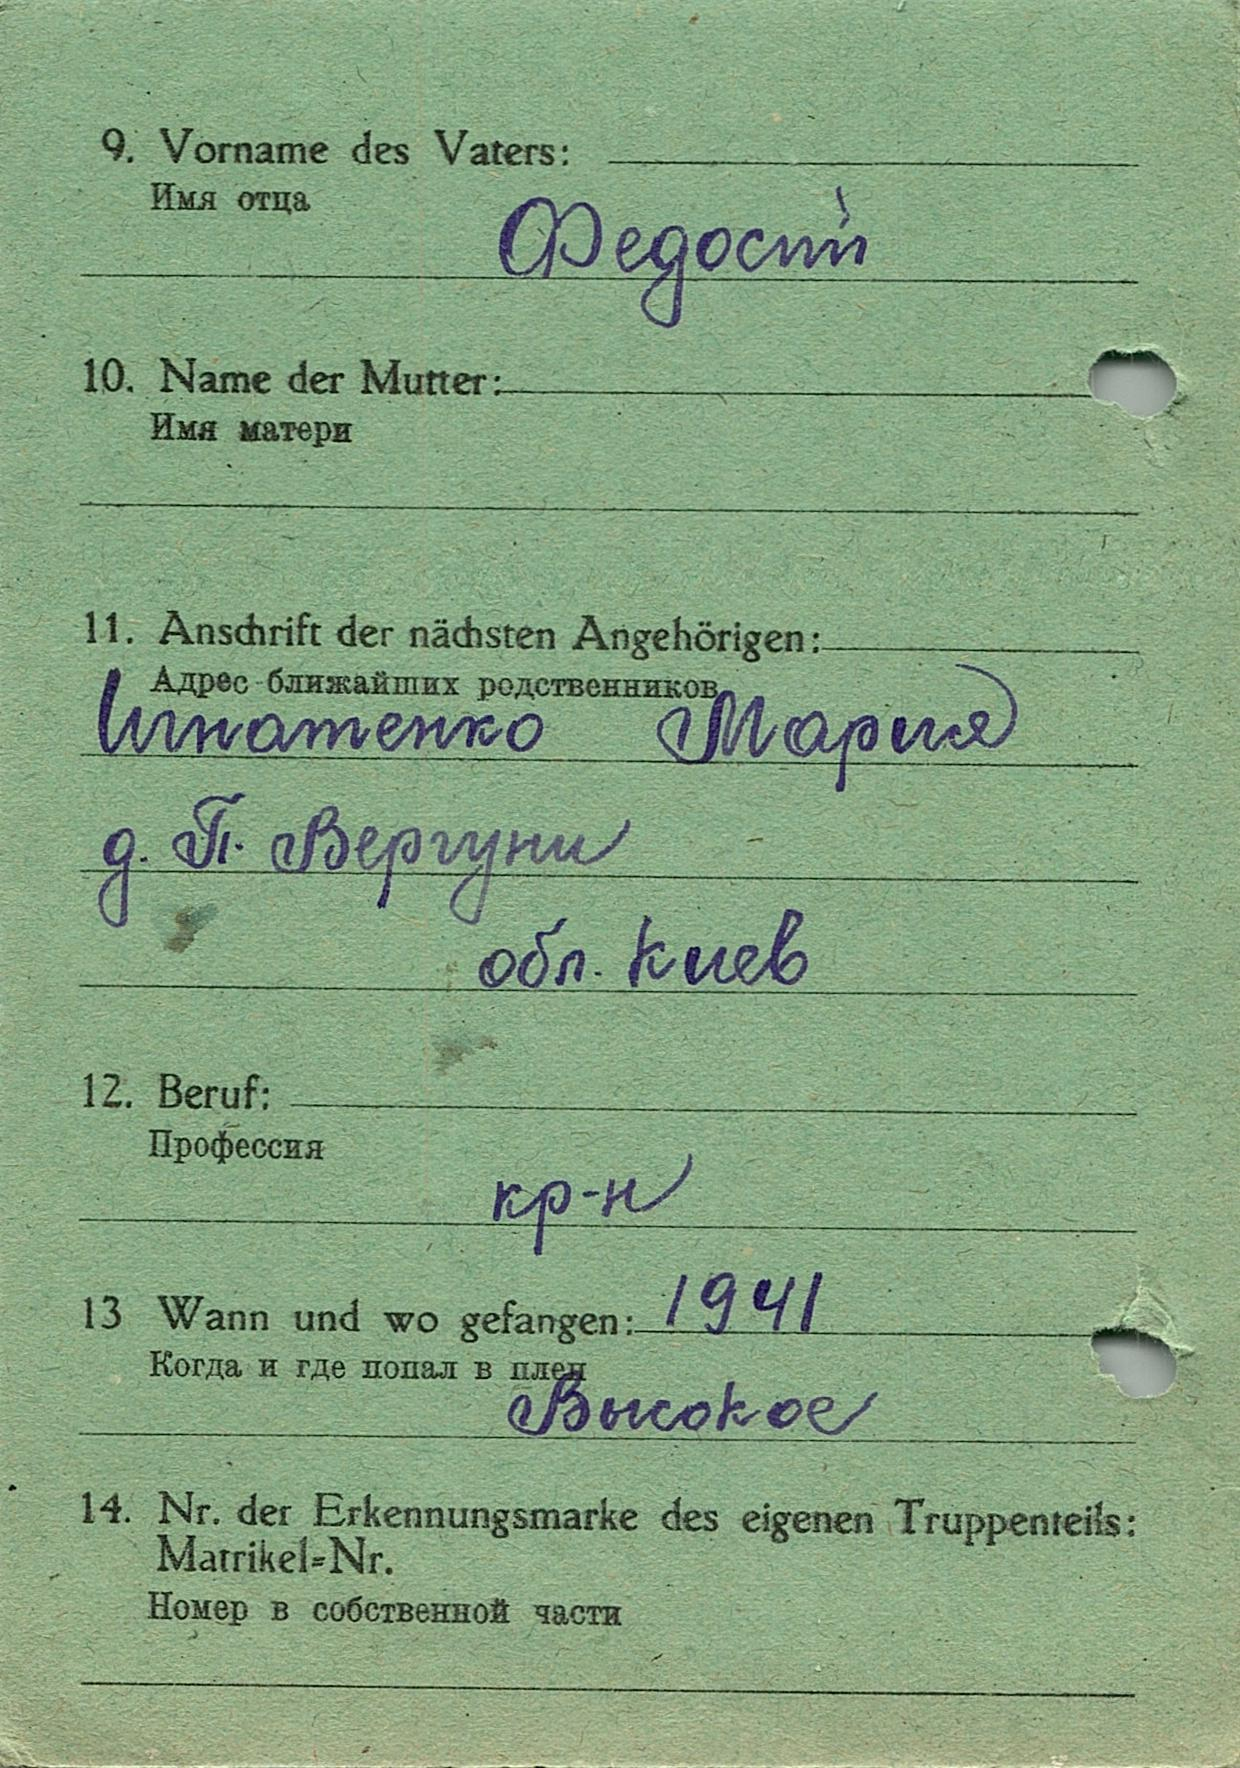 9. Vorname des Vaters:
Имя отца
Федостй
10. Name der Mutter:
Имя матери
11. Anschrift der nächsten Angehörigen:
Адрес ближайших родственников
Игнатенко Мария
д. П. Вергуни
обл. Киев
12. Beruf:
Профессия
кр-н
13 Wann und wo gefangen: 1941
Когда и где попал в плен
Высокое
14. Nr. der Erkennungsmarke des eigenen Truppenteils:
Matrikel=Nr.
Номер в собственной части